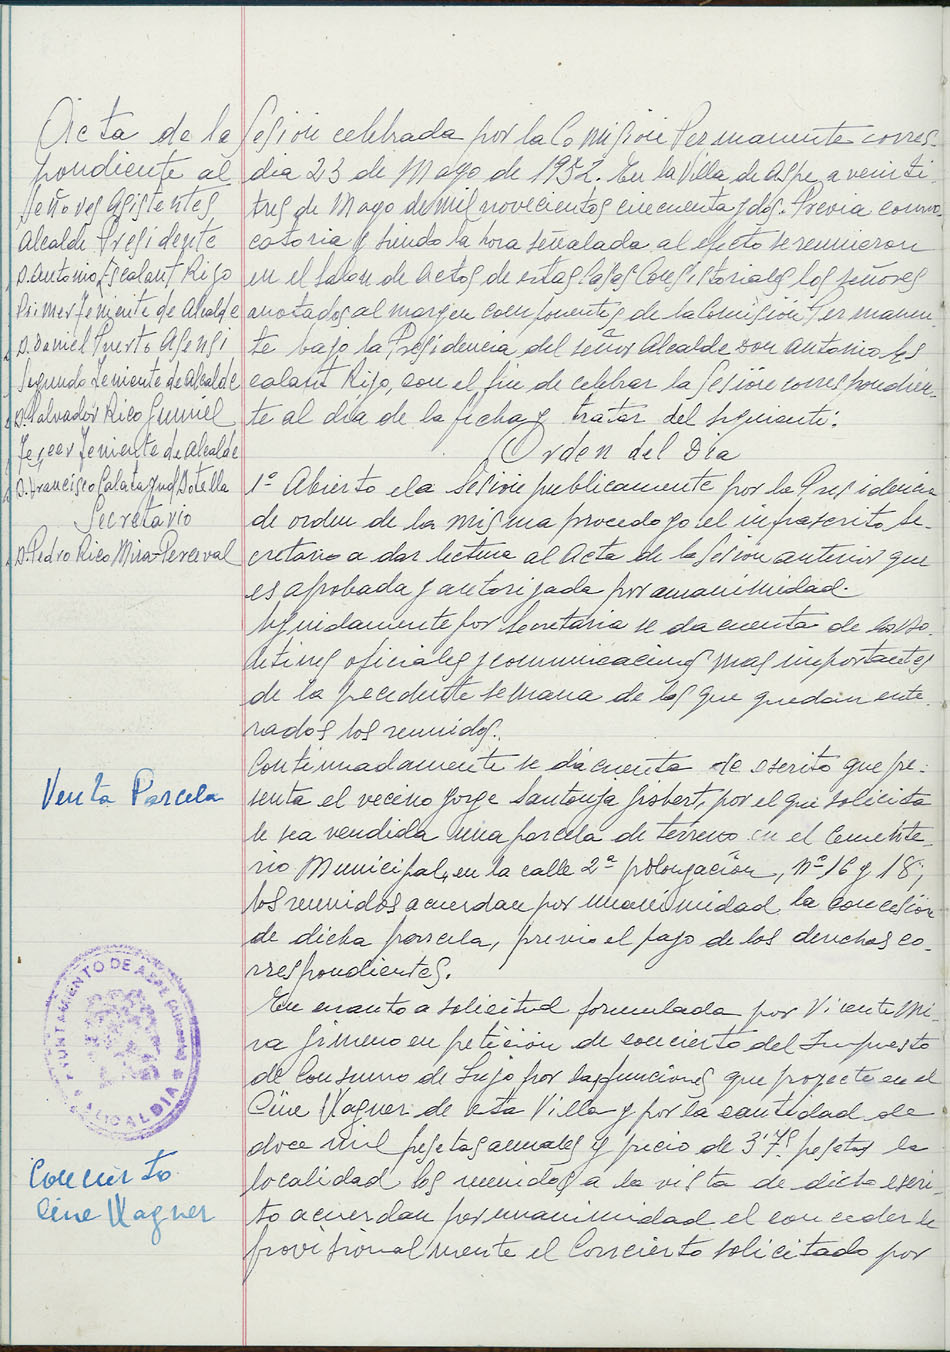 Acta de la Sesión celebrada por la Comisión Permanente corres-
pondiente al dia 23 de Mayo de 1952. En la Villa de Aspe, a veinti-
Señores Asistentes
Alcalde Presidente
D. Antonio Escalant Rigo
Primer Teniente de Alcalde
D. Daniel Puerto Asensi
Segundo Teniente de Alcalde
D. Salvador Rico Gumiel
Tercer Teniente de Alcalde
D. Francisco Calatayud Botella
Secretario
D. Pedro Rico Mira-Perceval
tres de Mayo de mil novecientos cincuenta y dos. Previa convo-
catoria y siendo la hora señalada al efecto se reunieron
en el Salon de Actos de estas Casas Consistoriales los señores
anotados al margen componentes de la Comisión Permanen-
te bajo la Presidencia del señor Alcalde don Antonio Es
calant Rigo, con el fin de celebrar la Sesión correspondien-
te al día de la fecha y tratar del siguiente:
Orden del Dia
1º Abierto ela Sesión publicamente por la Presidencia
de orden de la misma procedo yo el infrascrito Se-
cretario a dar lectura al Acta de la Sesion anterior que
es aprobada y autorizada por unanimidad.
Seguidamente por Secretaria se da cuenta de los Bo-
letines oficiales y comunicaciones mas importantes
de la precedente semana de los que quedan ente-
rados los reunidos.
Venta Parcela
Continuadamente se da cuenta de escrito que pre-
senta el vecino Jorge Santonja Gisbert, por el que solicita
le sea vendida una parcela de terreno en el Cemente-
rio Municipal, en la calle 2ª prolongación, Nº 16 y 18;
los reunidos acuerdan por unanimidad la concesión
de dicha parcela, previo el pago de los derechos co-
rrespondientes.
AYUNTAMIENTO DE ASPE (Alicante)
ALCALDIA
Concierto
Cine Wagner
En cuanto a solicitud formulada por Vicente Mi-
ra Gimeno en petición de concierto del Impuesto
de Consumo de Lujo por las funciones que proyecte en el
Cine Wagner de esta Villa y por la cantidad de
doce mil pesetas anuales y precio de 3'75 pesetas la
localidad los reunidos a la vista de dicho escri-
to acuerdan por unanimidad el conceder le
provisionalmente el Concierto solicitado por